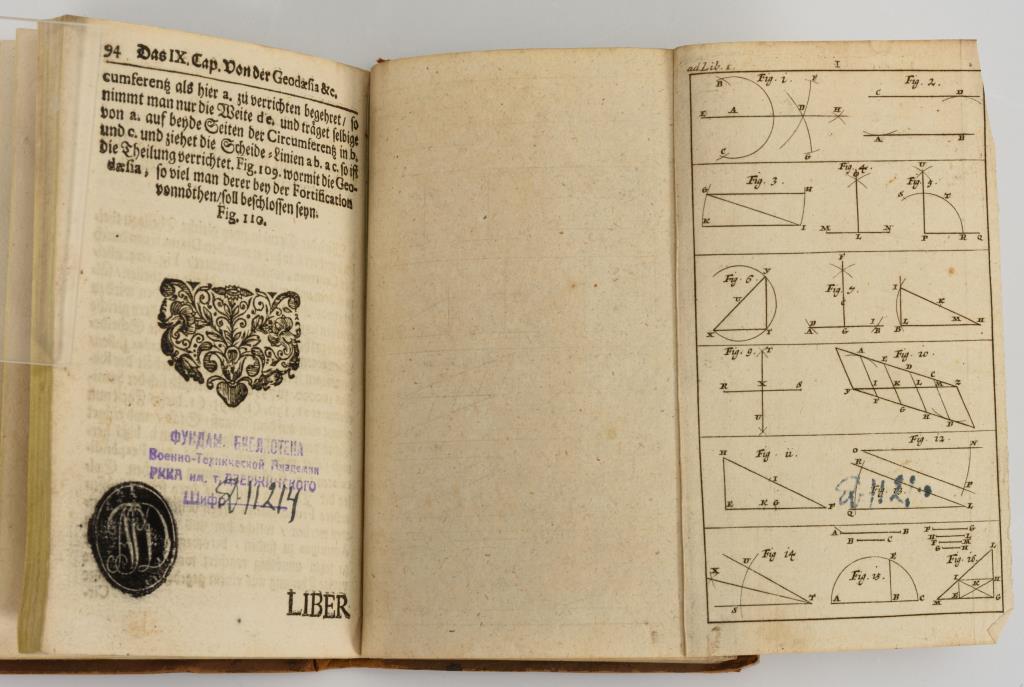 94 Das IX. Cap. Von der Geodæsia &c.
cumferentz als hier a. zu verrichten begehret / so
nimmt man nur die Weite d e. und träget selbige
von a. auf beyde Seiten der Circumferentz in b.
und c. und ziehet die Scheide-Linien a b. a c. so ist
die Theilung verrichtet. Fig. 109. wormit die Geo-
dæsia, so viel man derer bey der Fortification
vonnöthen/soll beschlossen seyn.
Fig. 110.
ФУНДАМ. БИБЛИОТЕКА
Военно-Технической Академии
РККА им. т. ДЗЕРЖИНСКОГО
Шифр Д-11214
LIBER
ad Lib. 1. 1
B Fig. 1. F Fig. 2.
C D
E A D H
A B
C G
Fig. 3 Fig. 4. U Fig. 5.
G H S T
K I M L N P R Q
Fig. 6 Y F
U C I K
X T A D G I B B L M H
Fig. 9. T A E Fig. 10.
R X S D C
U Y I K L M Z
F G H B
H Fig. 11. O Fig. 12. N
I R
E K G F Q P L
A B F G
B C H L
F M
G H
X U Fig. 14 E Fig. 15. Fig. 16. L
I H
K
S T A B C M E G